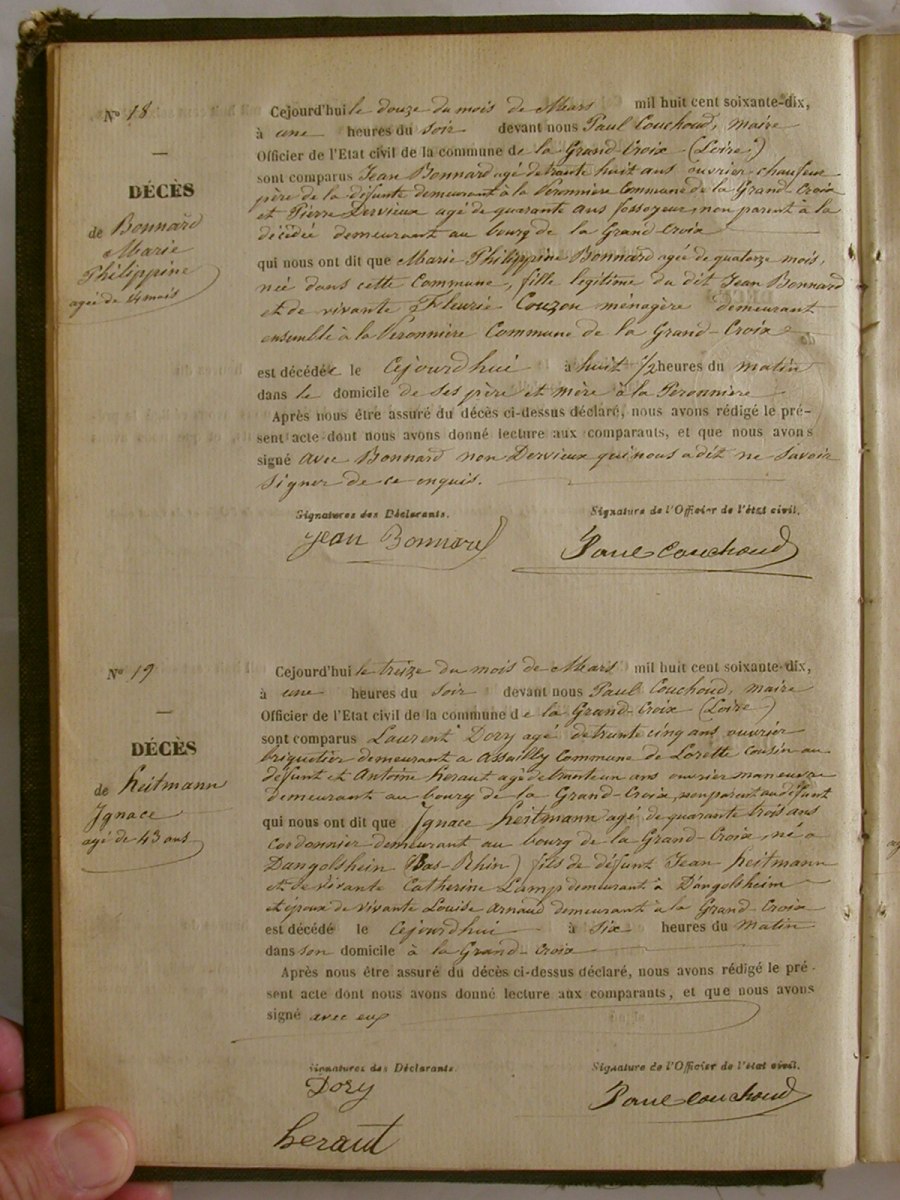 N° 18
DÉCÈS
de Bonnard
Marie
Philippine
agée de 14 mois
Cejourd'hui le douze du mois de Mars mil huit cent soixante-dix,
à une heures du soir devant nous Paul Couchoud, maire
Officier de l'Etat civil de la commune de la Grand-Croix (Loire)
sont comparus Jean Bonnard agé de trente huit ans ouvrier chaufeur
père de la défunte demeurant à la Péronnière Commune de la Grand-Croix
et Pierre Dervieux agé de quarante ans fossoyeur, non parent à la
décédée demeurant au bourg de la Grand-Croix
qui nous ont dit que Marie Philippine Bonnard agée de quatorze mois,
née dans cette Commune, fille legitime du dit Jean Bonnard
et de vivante Fleurie Couzon ménagère demeurant
ensemble à la Péronnière Commune de la Grand-Croix
est décédée le Cejourdhui à huit 1/2 heures du matin
dans le domicile de ses père et mère à la Péronnière
Après nous être assuré du décès ci-dessus déclaré, nous avons rédigé le pré-
sent acte dont nous avons donné lecture aux comparants, et que nous avons
signé avec Bonnard non Dervieux qui nous a dit ne savoir
signer de ce enquis.
Signatures des Déclarants. Signature de l'Officier de l'état civil.
Jean Bonnard Paul Couchoud
N° 19
DÉCÈS
de heitmann
Ignace
agé de 43 ans
Cejourd'hui le treize du mois de Mars mil huit cent soixante-dix,
à une heures du soir devant nous Paul Couchoud, maire
Officier de l'Etat civil de la commune de la Grand-Croix (Loire)
sont comparus Laurent Dory agé de trente cinq ans ouvrier
briquetier demeurant a Assailly Commune de Lorette cousin au
défunt et Antoine heraut agé de trente un ans ouvrier maneuvre
demeurant au bourg de la Grand-Croix, non parent au défunt
qui nous ont dit que Ignace heitmann agé de quarante trois ans
cordonnier demeurant au bourg de la Grand-Croix, né a
Dangolsheim (Bas-Rhin) fils de défunt Jean heitmann
et de vivante Catherine Lamp demeurant à Dangolsheim
et époux de vivante Louise Arnaud demeurant à la Grand-Croix
est décédé le Cejourdhui à Six heures du Matin
dans son domicile à la Grand-Croix
Après nous être assuré du décès ci-dessus déclaré, nous avons rédigé le pré-
sent acte dont nous avons donné lecture aux comparants, et que nous avons
signé avec eux
Signatures des Déclarants. Signature de l'Officier de l'état civil.
Dory Paul Couchoud
heraut